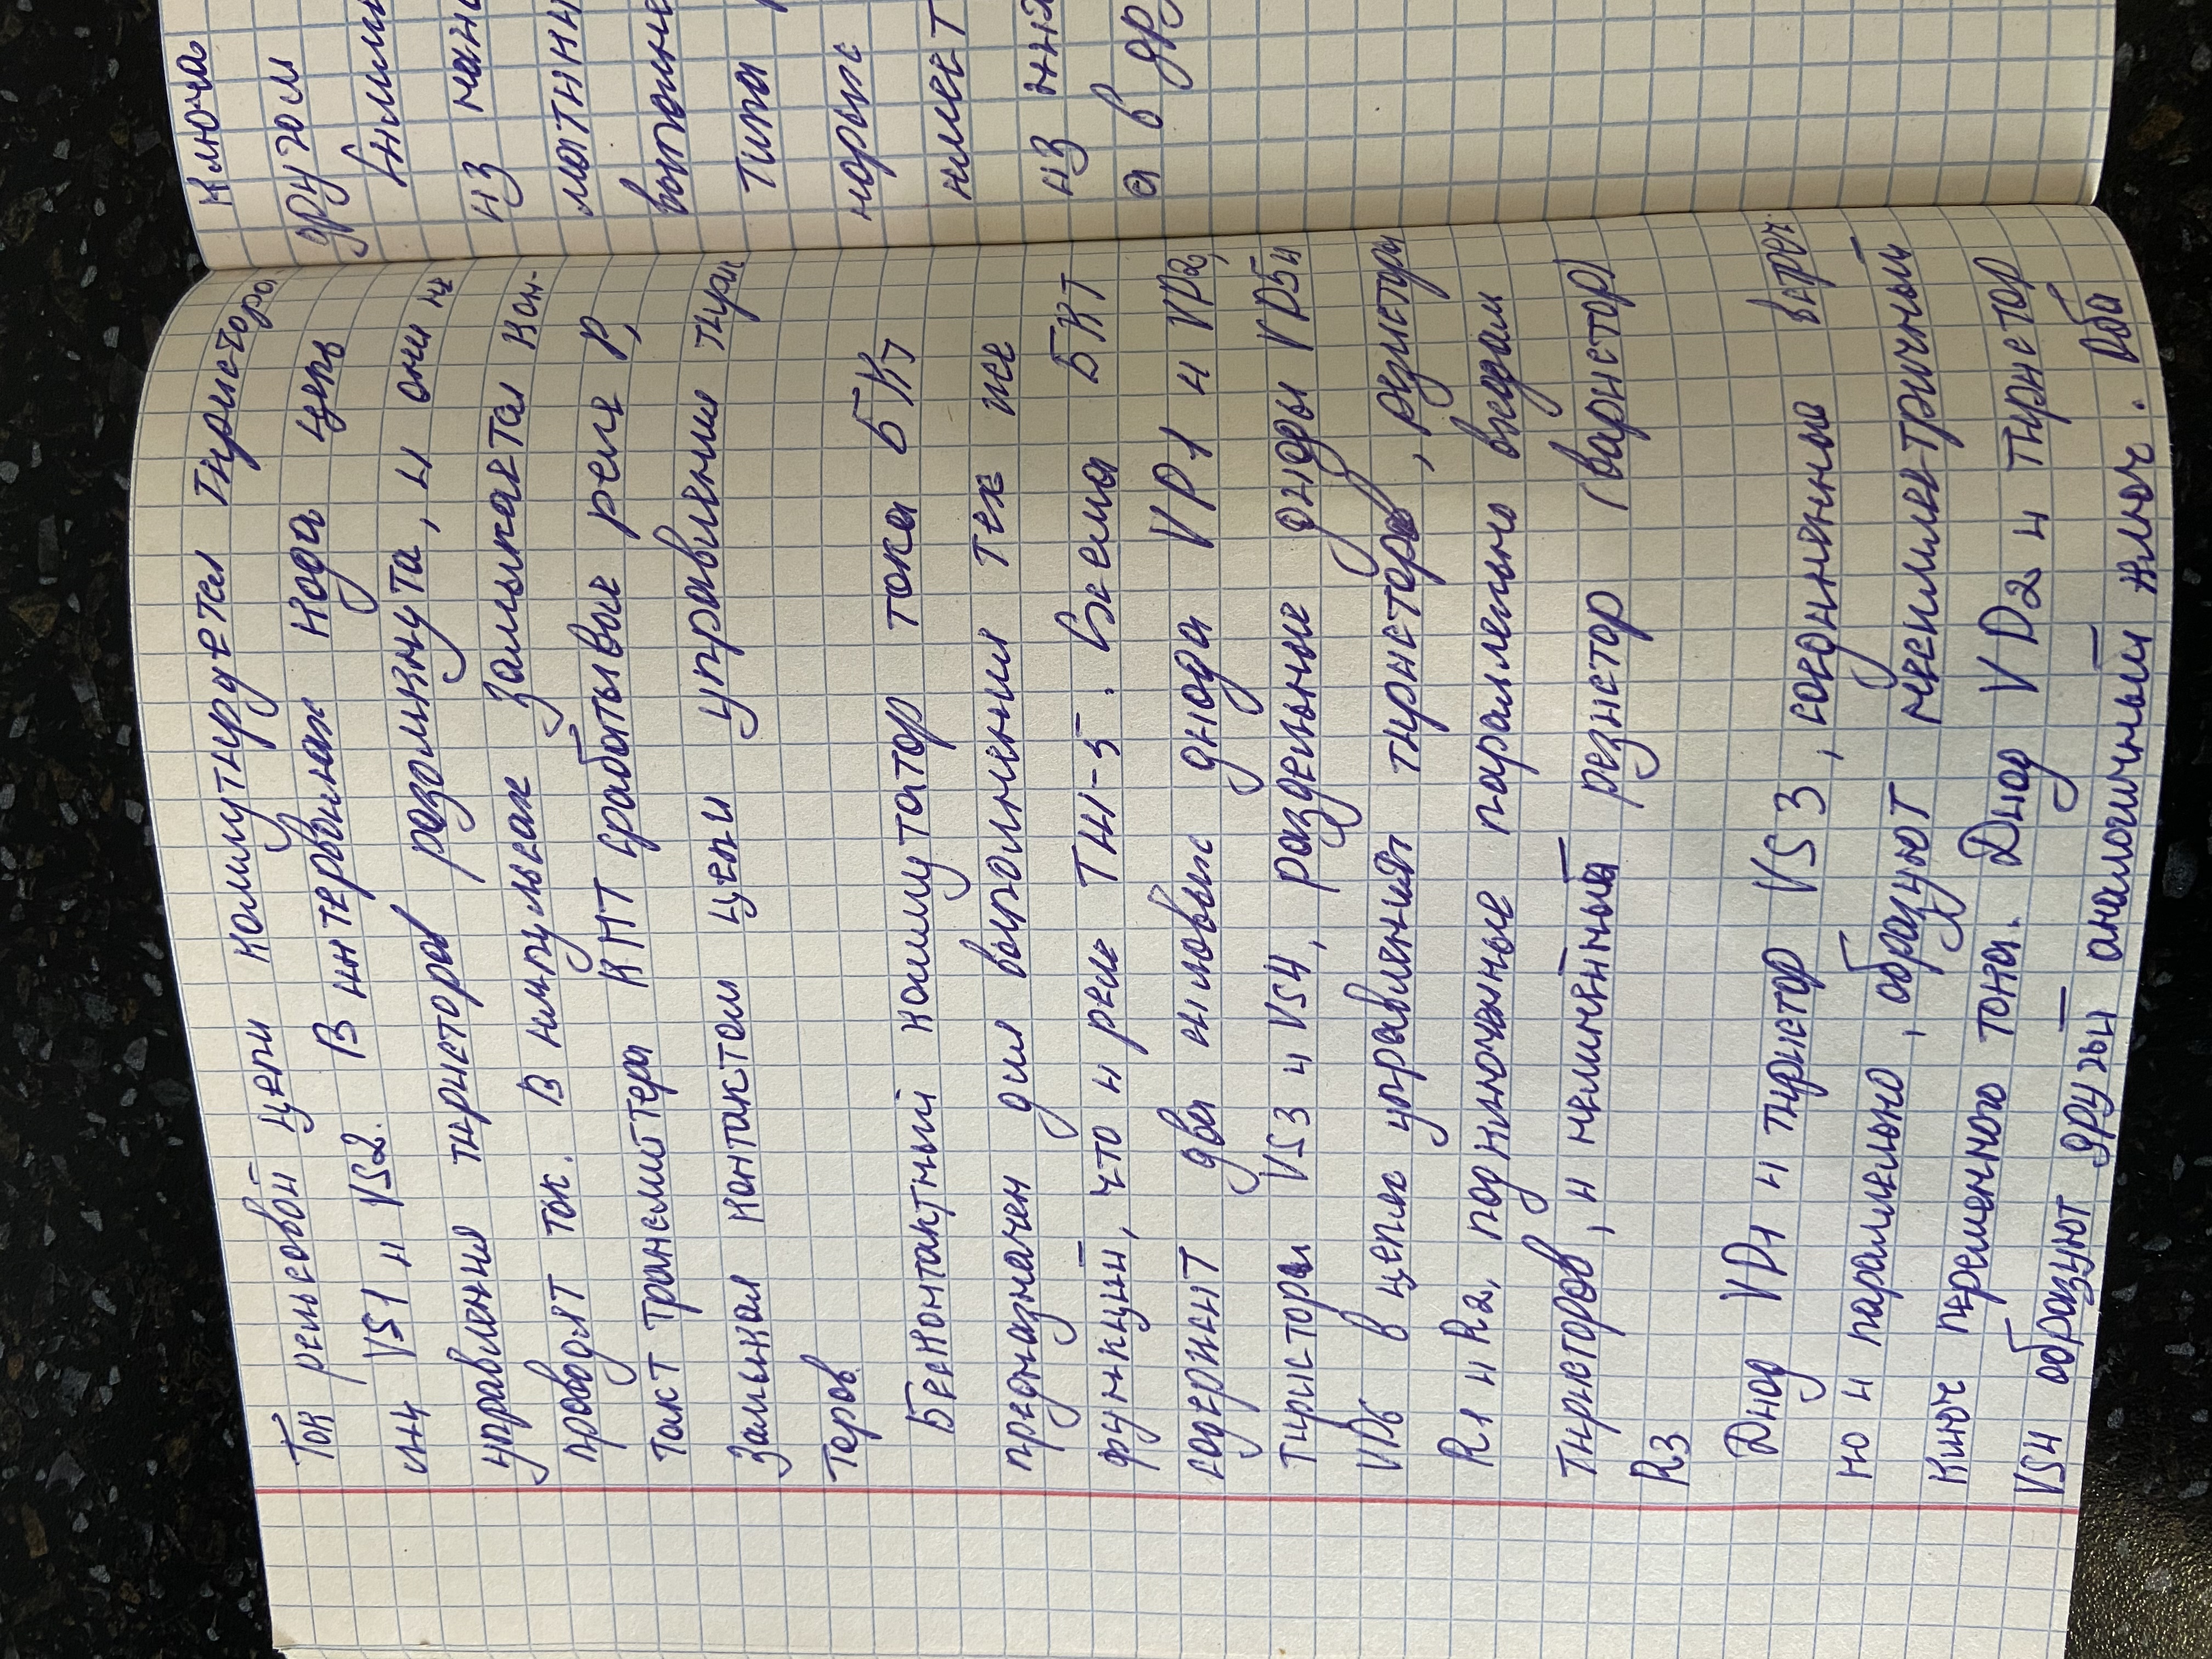 Ток рельсовой цепи коммутируется тиристора
ми VS1 и VS2. В интервалах кода цепь
управления тиристоров разомкнута, и они не
проводят ток. В импульсах замыкается кон-
такт трансмиттера КПТ срабатывае реле Р,
замыкая контактом цепи управление тирис
торов
Бесконтактный коммутатор тока БКТ
предназначен для выполнения тех же
функций, что и реле ТШ-5. Схема БКТ
содержит два силовых диода VP1 и VP2,
Тиристоры VS3 и VS4, раздельные диоды VD5 и
VD6 в цепях управления тиристоров, резистора
R1 и R2, подключенные паралельно входам
тиристоров, и нелинейный резистор (варистор)
R3
Диод VD1 и тиристор VS3, соединенные встреч
но и паралельно, образуют несимметричный
Ключ переменного тока. Диод VD2 и тиристор
VS4 образуют другой аналогичный ключ. Оба
ключа
другом
из
а в